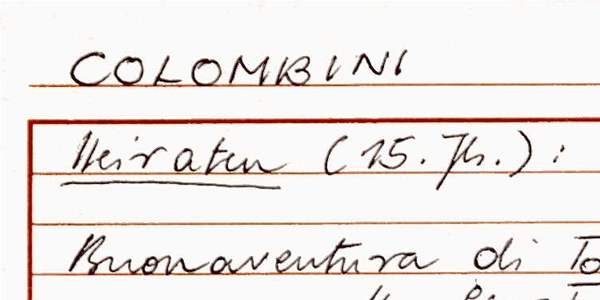 COLOMBINI
Heiraten (15. Jh.):
Buonaventura di